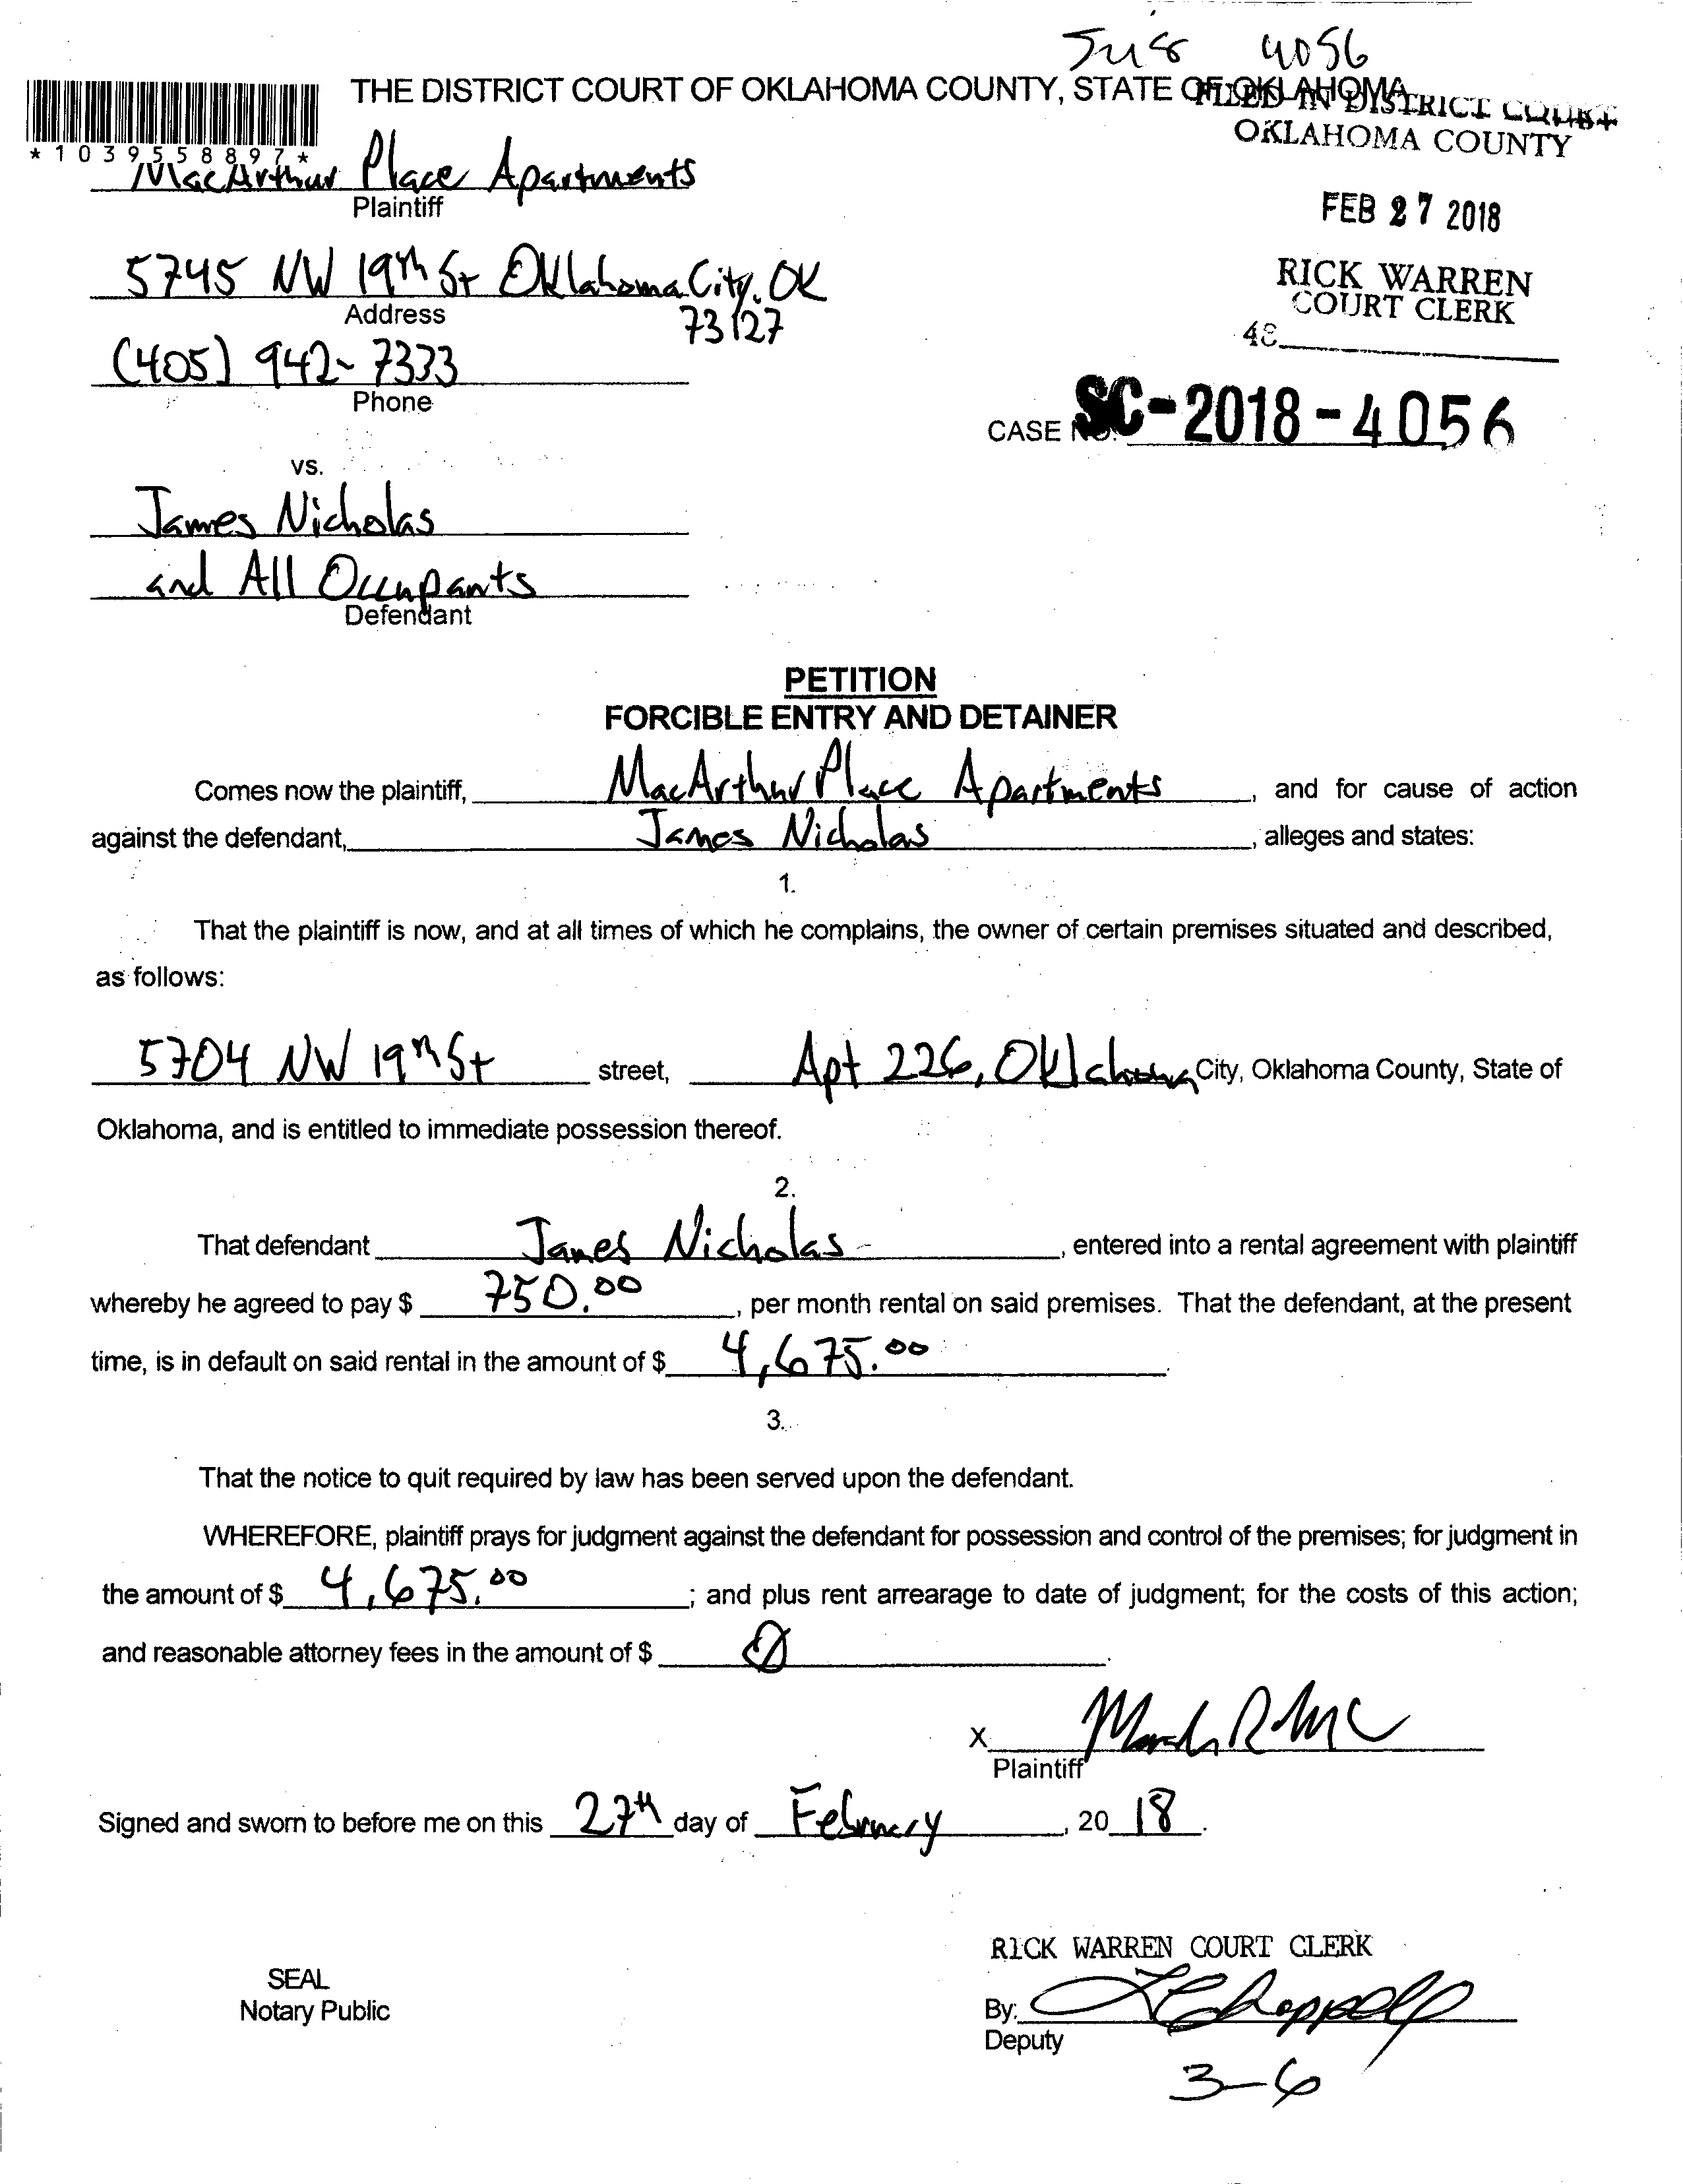 4056
THE DISTRICT COURT OF OKLAHOMA COUNTY, STATE OF OKLAHOMA
FILED IN DISTRICT COURT
OKLAHOMA COUNTY
*1039558897*
MacArthur Place Apartments
Plaintiff
FEB 27 2018
5745 NW 19th St Oklahoma City, OK
73127
Address
RICK WARREN
COURT CLERK
48
(405) 942-7333
Phone
CASE NO. SC-2018-4056
vs.
James Nicholas
and All Occupants
Defendant
PETITION
FORCIBLE ENTRY AND DETAINER
Comes now the plaintiff, MacArthur Place Apartments, and for cause of action
against the defendant, James Nicholas, alleges and states:
1.
That the plaintiff is now, and at all times of which he complains, the owner of certain premises situated and described,
as follows:
5704 NW 19th St street, Apt 226, Oklahoma City, Oklahoma County, State of
Oklahoma, and is entitled to immediate possession thereof.
2.
That defendant James Nicholas, entered into a rental agreement with plaintiff
whereby he agreed to pay $ 750.00, per month rental on said premises. That the defendant, at the present
time, is in default on said rental in the amount of $ 4,675.00.
3.
That the notice to quit required by law has been served upon the defendant.
WHEREFORE, plaintiff prays for judgment against the defendant for possession and control of the premises; for judgment in
the amount of $ 4,675.00; and plus rent arrearage to date of judgment; for the costs of this action;
and reasonable attorney fees in the amount of $ 0.
X
Plaintiff
Signed and sworn to before me on this 27th day of February, 20 18.
RICK WARREN COURT CLERK
SEAL
Notary Public
By:
Deputy
3-6